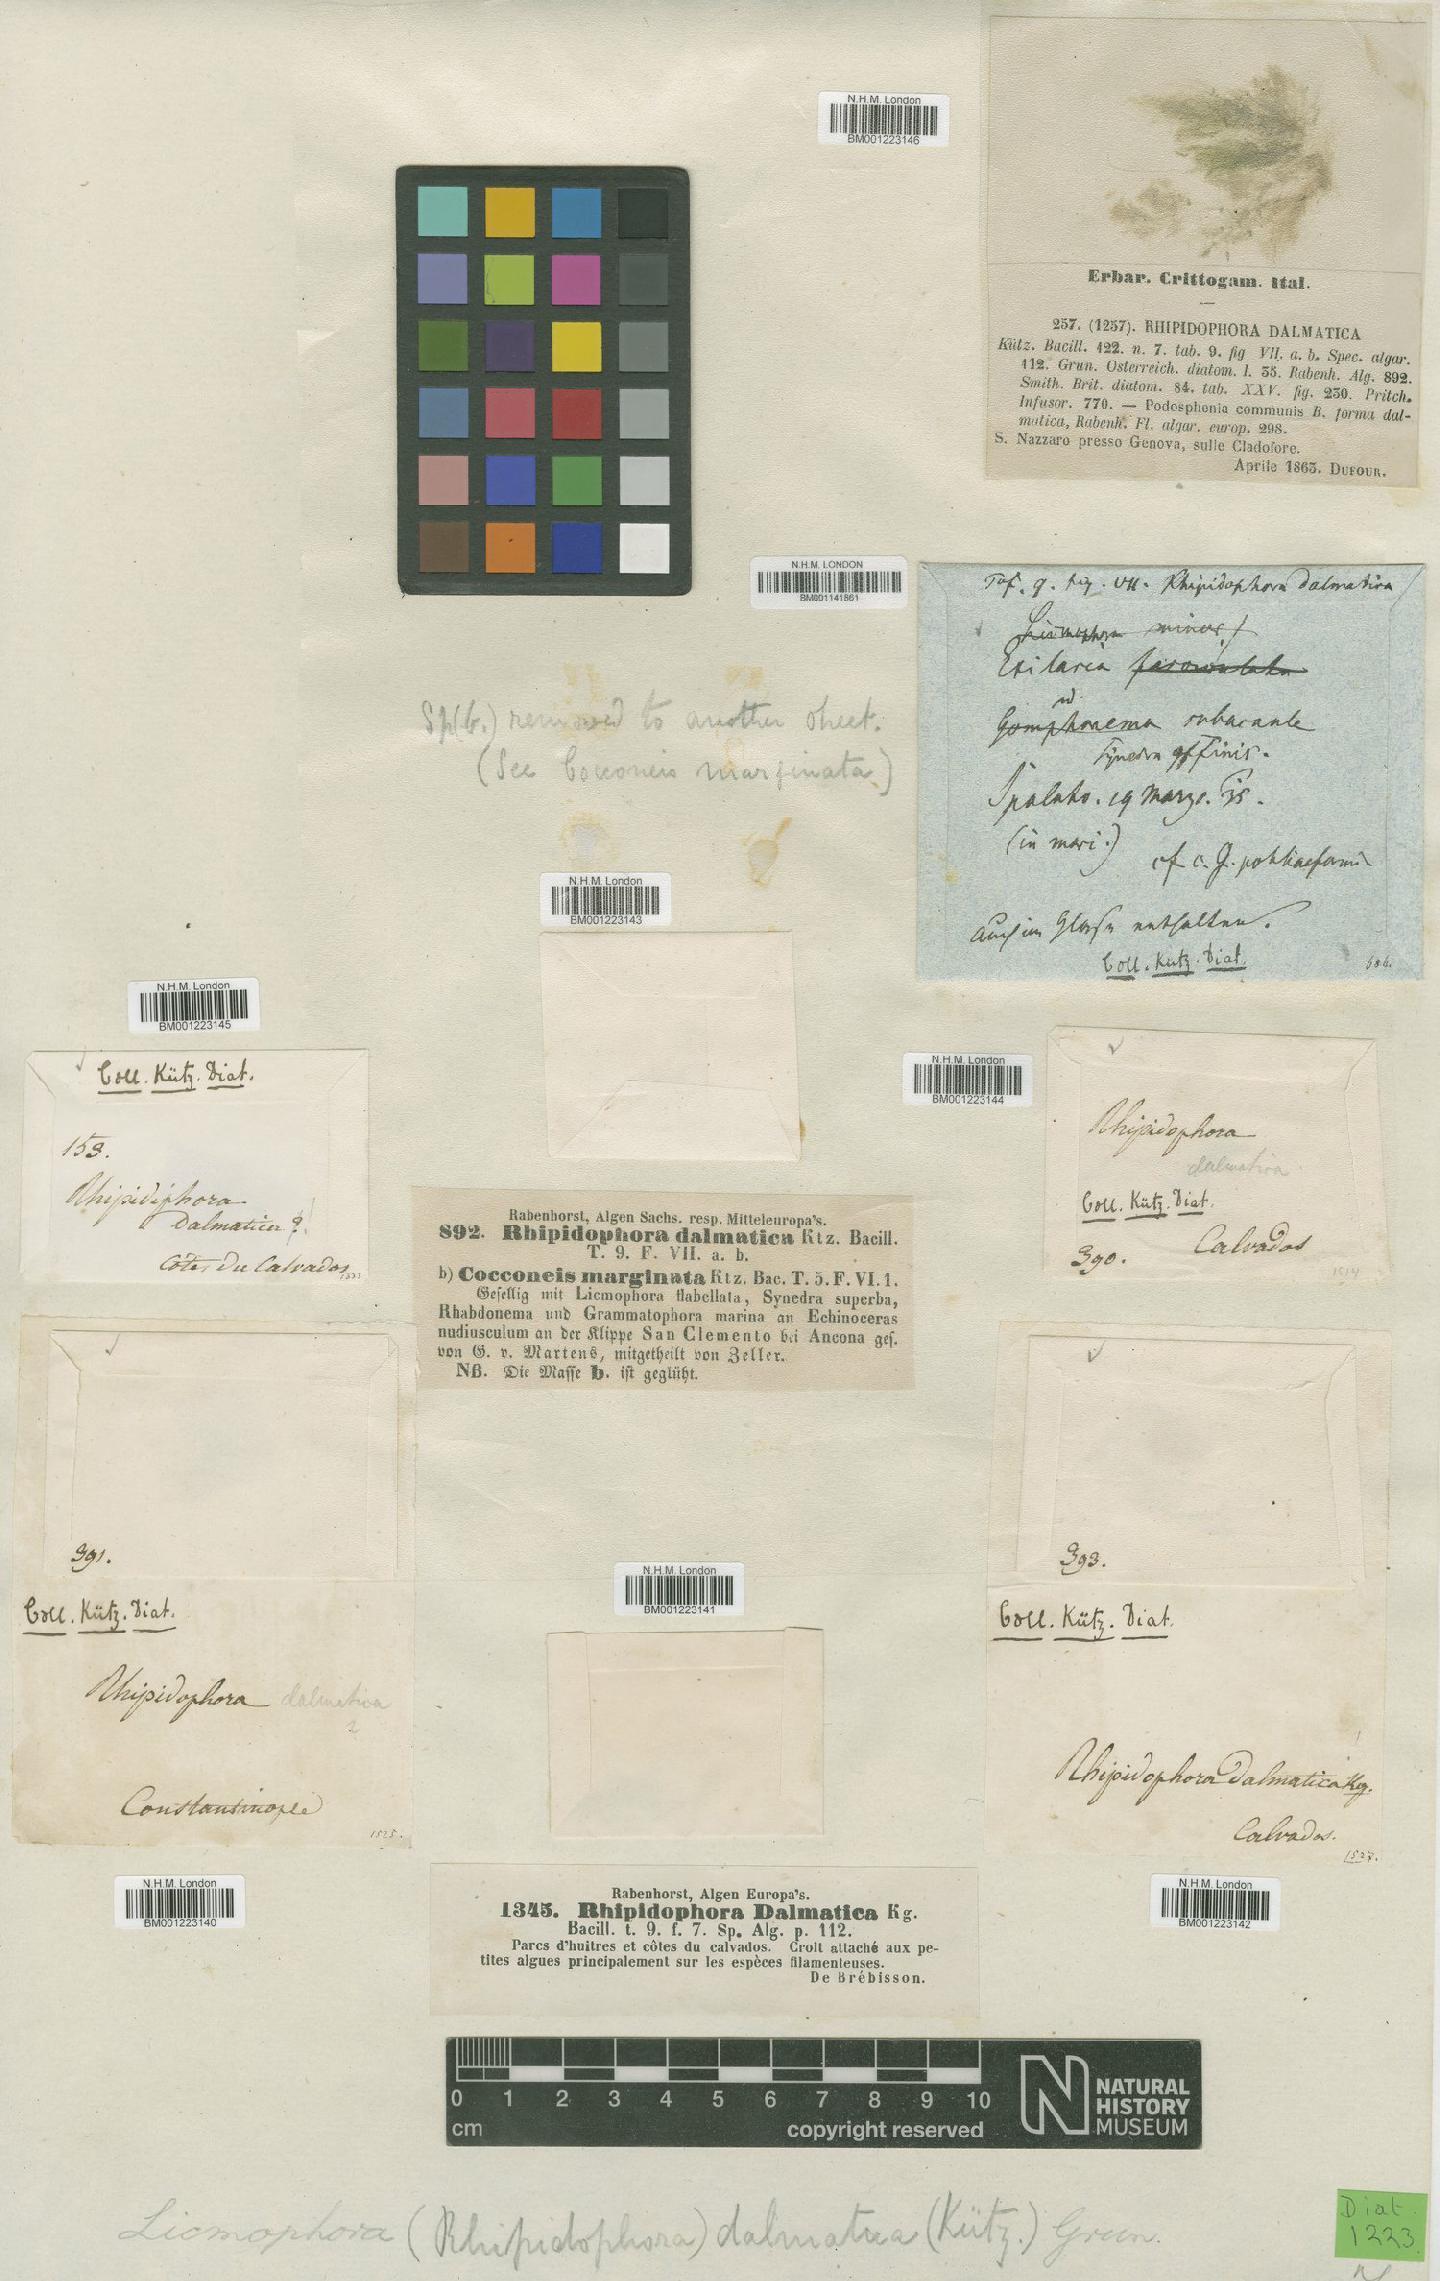 N.H.M. London
BM001223146
Erbar. Crittogam. Ital.
257. (1257). RHIPIDOPHORA DALMATICA
Kütz. Bacill. 122. n. 7. tab. 9. fig VII. a. b. Spec. algar.
112. Grun. Osterreich. diatom. l. 35. Rabenh. Alg. 892.
Smith. Brit. diatom. 84. tab. XXV. fig. 230. Pritch.
Infusor. 770. — Podosphenia communis B. forma dal-
matica, Rabenh. Fl. algar. europ. 298.
S. Nazzaro presso Genova, sulle Cladofore.
Aprile 1863. DUFOUR.
N.H.M. LONDON
BM001141861
Taf. 9. fig. VII. Rhipidophora dalmatica
Licmophora minor
Exilaria
Gomphonema subacaule
Synedra affinis.
Spalato. 19 Marz. 35.
(in mari.)
Auch im Glase enthalten.
Coll. Kütz. Diat.
Sp(b.) removed to another sheet.
(See Cocconeis marginata)
N.H.M. London
BM001223143
N.H.M. London
BM001223145
Coll. Kütz. Diat.
153.
Rhipidiphora
Dalmatica ?
Côtes du Calvados
N.H.M. London
BM001223144
Rhipidophora
dalmatica
Coll. Kütz. Diat.
390. Calvados
Rabenhorst, Algen Sachs. resp. Mitteleuropa's.
892. Rhipidophora dalmatica Ktz. Bacill.
T. 9. F. VII. a. b.
b) Cocconeis marginata Ktz. Bac. T. 5. F. VI. 1.
Gesellig mit Licmophora flabellata, Synedra superba,
Rhabdonema und Grammatophora marina an Echinoceras
nudiusculum an der Klippe San Clemento bei Ancona ges.
von G. v. Martens, mitgetheilt von Zeller.
NB. Die Masse b. ist geglüht.
391.
Coll. Kütz. Diat.
Rhipidophora dalmatica
Constantinople
1525.
N.H.M. London
BM001223140
393.
Coll. Kütz. Diat.
Rhipidophora Dalmatica Kg.
Calvados.
1527.
N.H.M. London
BM001223142
N.H.M. London
BM001223141
Rabenhorst, Algen Europa's.
1345. Rhipidophora Dalmatica Kg.
Bacill. t. 9. f. 7. Sp. Alg. p. 112.
Parcs d'huitres et côtes du calvados. Croit attaché aux pe-
tites algues principalement sur les espèces filamenteuses.
De Brébisson.
0 1 2 3 4 5 6 7 8 9 10
cm copyright reserved
NATURAL
HISTORY
MUSEUM
Licmophora (Rhipidophora) dalmatica (Kütz.) Grun.
Diat.
1223